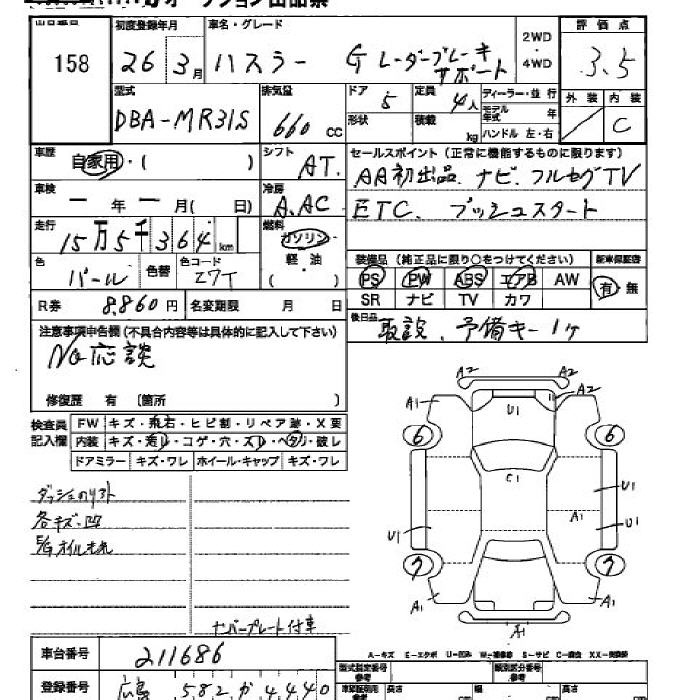 オークション出品票
出品番号
158
初度登録年月
26 3月
車名・グレード
ハスラー G レーダーブレーキサポート
2WD ・ 4WD
評価点
3.5
型式
DBA-MR31S
排気量
660 cc
ドア 5
定員 4人
形状
積載 kg
ディーラー・並行
モデル年式 年
ハンドル 左・右
外装 内装
/ C
車歴 自家用・( )
シフト AT
セールスポイント(正常に機能するものに限ります)
AA初出品、ナビ、フルセグTV
ETC、プッシュスタート
車検 ー年ー月( 日)
冷房 A.AC
走行 15万5千364km
燃料 ガソリン 軽油 ( )
色 パール
色替
色コード Z7T
装備品(純正品に限り○をつけてください)
新車保証書
PS PW ABS エアB AW
SR ナビ TV カワ
有 無
R券 8,860円
名変期限 月 日
後日品 取説、予備キー1ヶ
注意事項申告欄(不具合内容等は具体的に記入して下さい)
NC応談
修復歴 有 〔箇所 〕
検査員記入欄
FW キズ・飛石・ヒビ割・リペア跡・X要
内装 キズ・汚レ・コゲ・穴・スレ・ヘタリ・破レ
ドアミラー キズ・ワレ ホイール・キャップ キズ・ワレ
ダッシュのリフト
各キズ・凹
E/Gオイルもれ
ナンバープレート付車
A2 A2
A1 U1 A2
6 6
C1
U1 A1 U1
U1
7 7
A1 A1
A1
A-キズ E-エクボ U-凹み W-補修跡 S-サビ C-腐食 XX-交換跡
車台番号 211686
登録番号 広島 582 か 4440
型式指定番号 参考
類別区分番号 参考
長さ cm
高さ cm